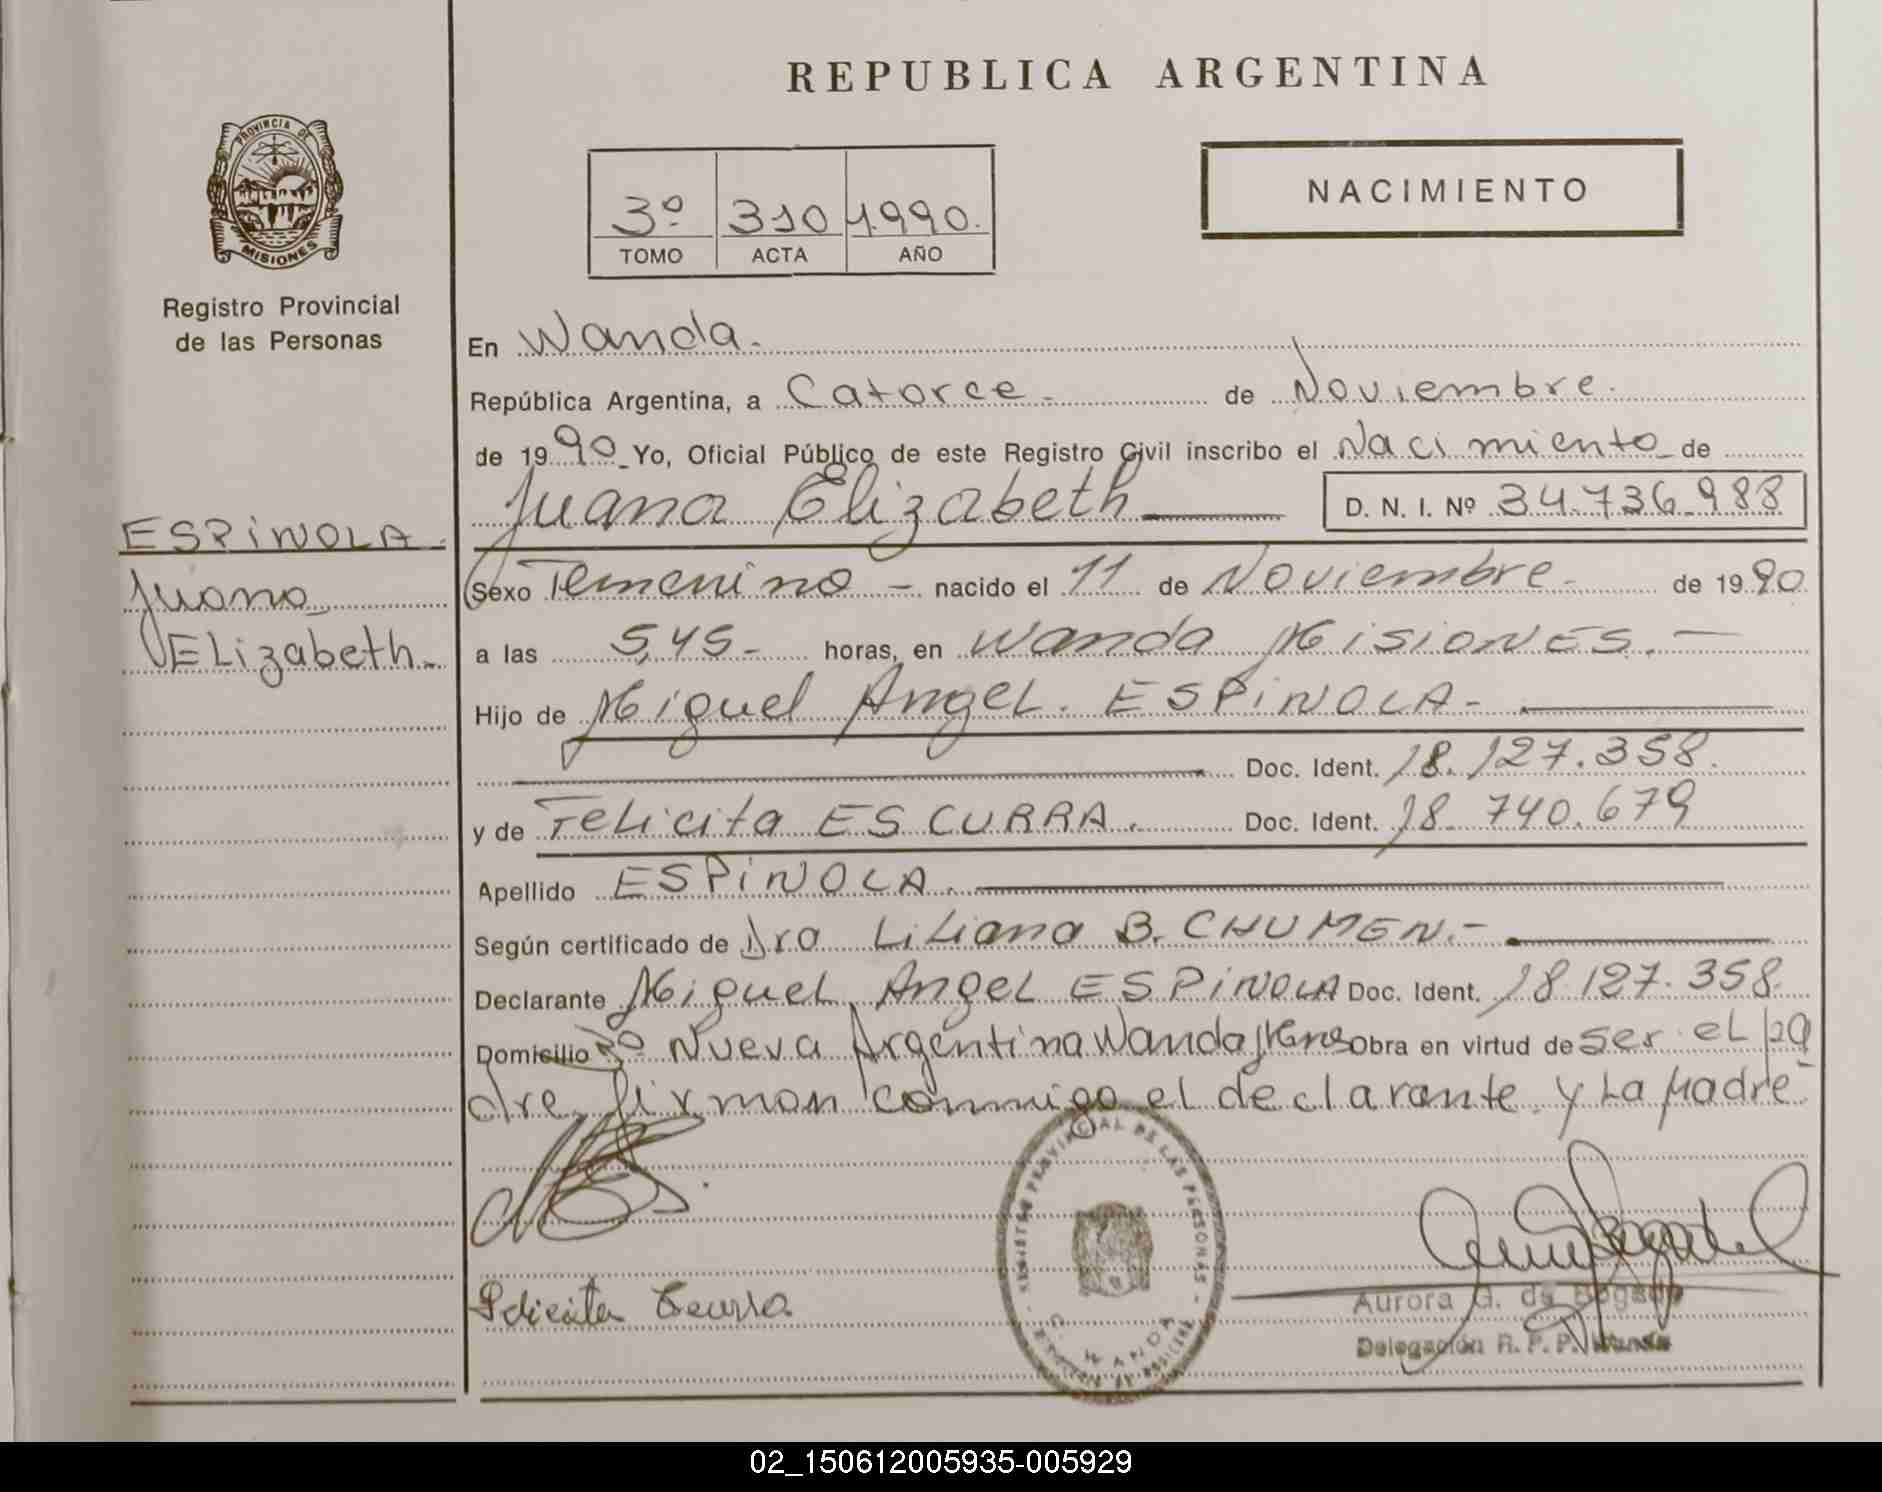 REPUBLICA ARGENTINA
PROVINCIA DE
MISIONES
Registro Provincial
de las Personas
3º 310 1990.
TOMO ACTA AÑO
NACIMIENTO
ESPiNOLA.
Juana
ELizabeth.
En Wanda.
República Argentina, a Catorce - de Noviembre.
de 1990 Yo, Oficial Público de este Registro Civil inscribo el Nacimiento de
Juana Elizabeth D. N. I. Nº 34.736.988
Sexo Femenino - nacido el 11 de Noviembre. de 1990
a las 5,45- horas, en Wanda MISIONES.-
Hijo de Miguel AngeL. ESPiNOLA-
Doc. Ident. 18.127.358.
y de FeLicita ESCURRA. Doc. Ident. 18.740.679
Apellido ESPiNOLA.
Según certificado de Dra LiLiana B. CHUMEN.-
Declarante MigueL AngeL ESPiNOLA Doc. Ident. 18.127.358.
Domicilio Bº Nueva Argentina Wanda Mnes Obra en virtud de ser eL pa
dre, firman conmigo el declarante y La Madre
Felicita Ecurra
REGISTRO PROVINCIAL DE LAS PERSONAS
WANDA
Aurora G. de Bogado
Delegación R. P. P. Wanda
02_150612005935-005929